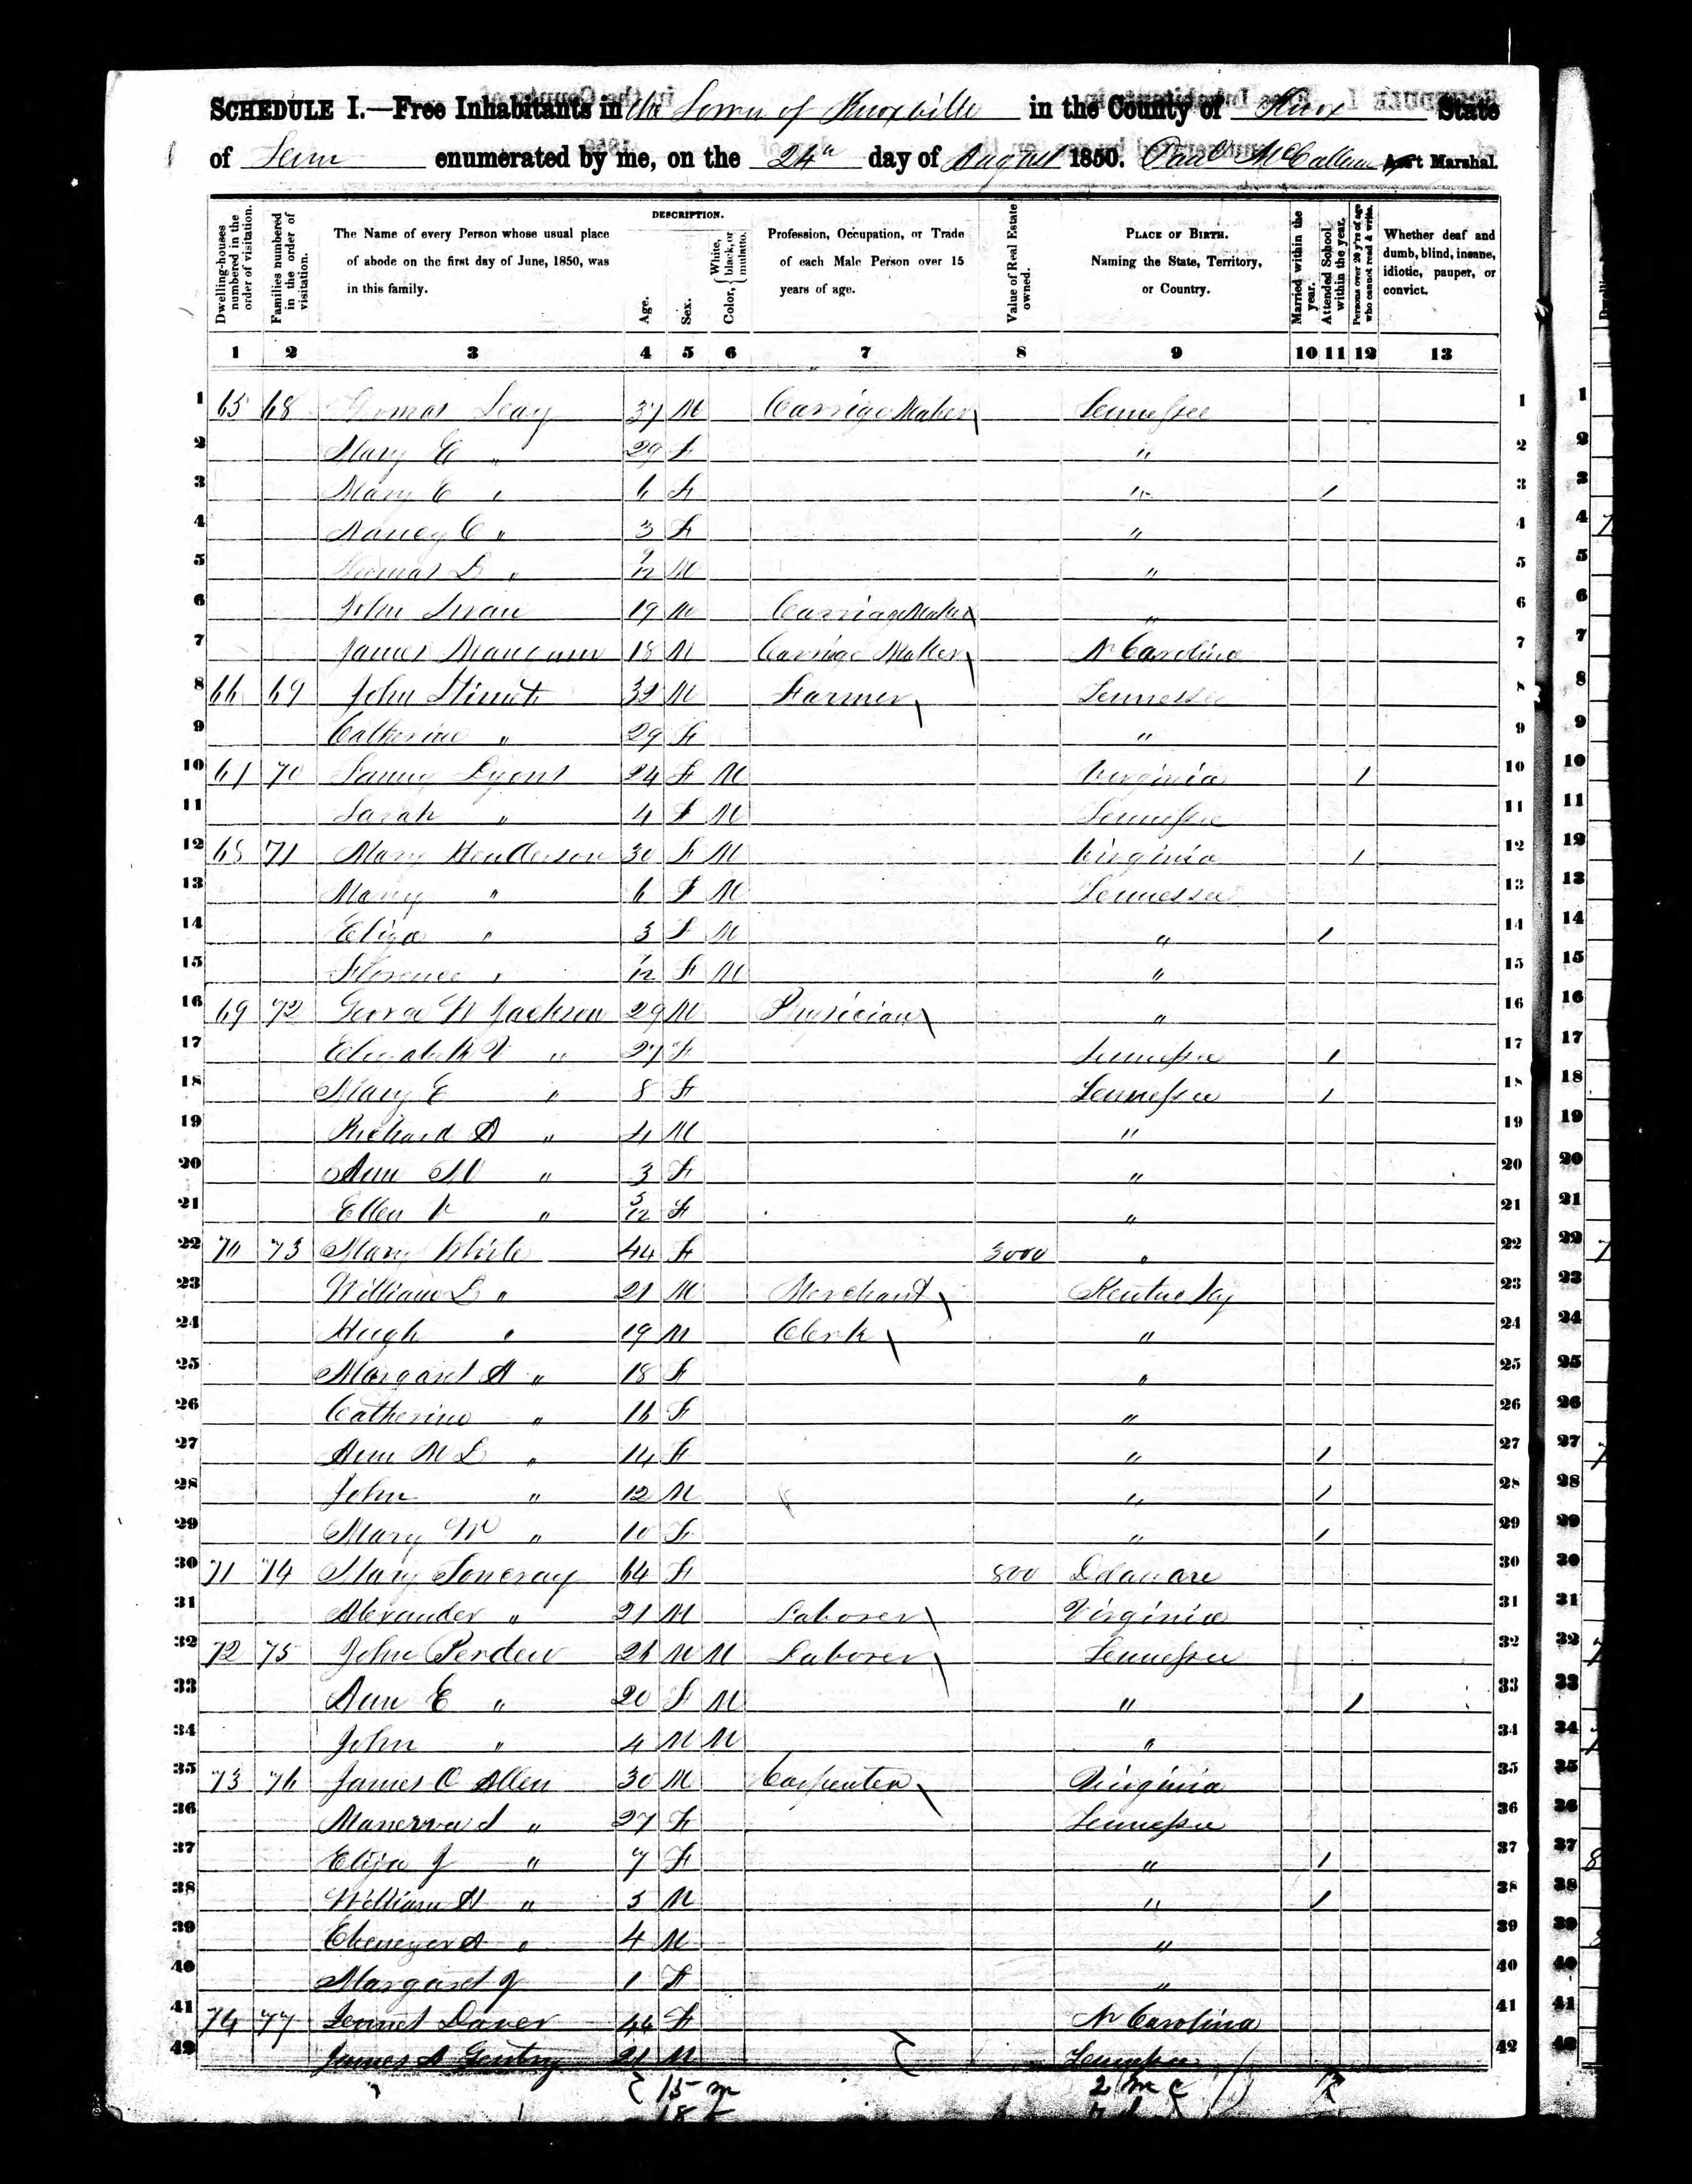 SCHEDULE I.—Free Inhabitants in the Town of Knoxville in the County of Knox State
of Tenn enumerated by me, on the 24th day of August 1850. Paul McCallum Ass't Marshal.
Dwelling-houses numbered in the order of visitation.
Families numbered in the order of visitation.
The Name of every Person whose usual place of abode on the first day of June, 1850, was in this family.
DESCRIPTION.
Age.
Sex.
Color, { White, black, or mulatto.
Profession, Occupation, or Trade of each Male Person over 15 years of age.
Value of Real Estate owned.
PLACE OF BIRTH. Naming the State, Territory, or Country.
Married within the year.
Attended School within the year.
Persons over 20 y'rs of age who cannot read & write.
Whether deaf and dumb, blind, insane, idiotic, pauper, or convict.
1 2 3 4 5 6 7 8 9 10 11 12 13
1 65 68 Thomas Leay 37 M Carrige Maker Tennessee 1
2 Mary E " 29 F " 2
3 Mary E " 6 F " / 3
4 Nancy C " 3 F " 4
5 Thomas L " M " 5
6 John 19 M Carriage Maker " 6
7 James 18 M Carrige Maker N Carolina 7
8 66 69 John 32 M Farmer Tennessee 8
9 Catherine " 29 F " 9
10 67 70 Lyons 24 F M Virginia / 10
11 Sarah " 4 F M Tennessee 11
12 68 71 Mary Henderson 30 F M Virginia / 12
13 Mary " 6 F M Tennessee 13
14 Eliza " 3 F M " / 14
15 Florence " F M " 15
16 69 72 George W Jackson 29 M Physician " 16
17 Elizabeth " 27 F Tennessee / 17
18 Mary E " 8 F Tennessee / 18
19 Richard A " 4 M " 19
20 Ann M " 3 F " 20
21 Ellen " 5/12 F " 21
22 70 73 Mary White 44 F 3000 " 22
23 William L " 21 M Merchant Kentucky 23
24 Hugh " 19 M Clerk " 24
25 Margaret A " 18 F " 25
26 Catherine " 16 F " 26
27 Ann M L " 14 F " / 27
28 John " 12 M " / 28
29 Mary W " 10 F " / 29
30 71 74 Mary Toncray 64 F 800 Delaware 30
31 Alexander " 21 M Laborer Virginia 31
32 72 75 John Perdew 26 M M Laborer Tennessee 32
33 Ann E " 20 F M " / 33
34 John " 4 M M " 34
35 73 76 James C Allen 30 M Carpenter Virginia 35
36 " 27 F Tennessee 36
37 Eliza J " 7 F " / 37
38 William H " 5 M " / 38
39 Ebenezer A " 4 M " 39
40 Margaret J 1 F " 40
41 74 77 44 F N Carolina 41
42 James A Gentry 21 M Tennessee 42
15 m
18 f